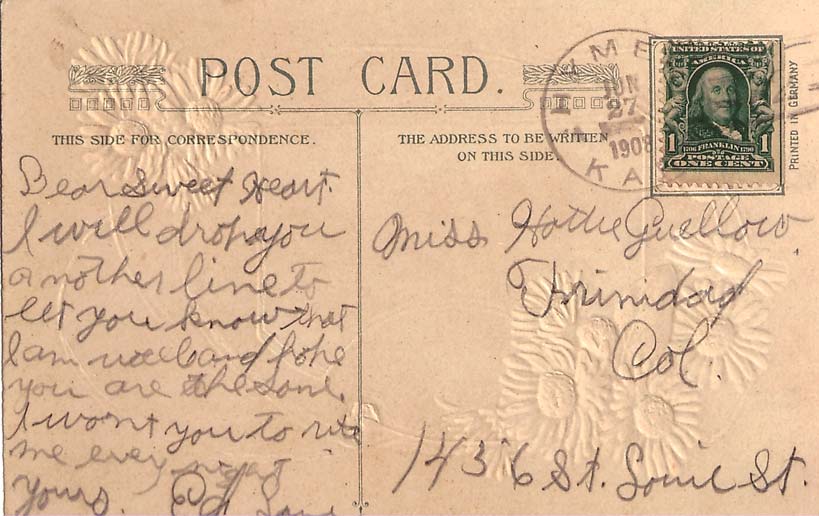 POST CARD.
THIS SIDE FOR CORRESPONDENCE.
Dear Sweet Heart.
I will drop you
another line to
let you know that
I am well and hope
you are the same.
I wont you to rite
me every night
yours. Ed
THE ADDRESS TO BE WRITTEN
ON THIS SIDE.
JUN
27
1908
KA
UNITED STATES OF
AMERICA
1706 FRANKLIN 1790
1 POSTAGE
ONE CENT
PRINTED IN GERMANY
Miss Hattie Guellow
Trinidad
Col.
1436 St. Louie St.